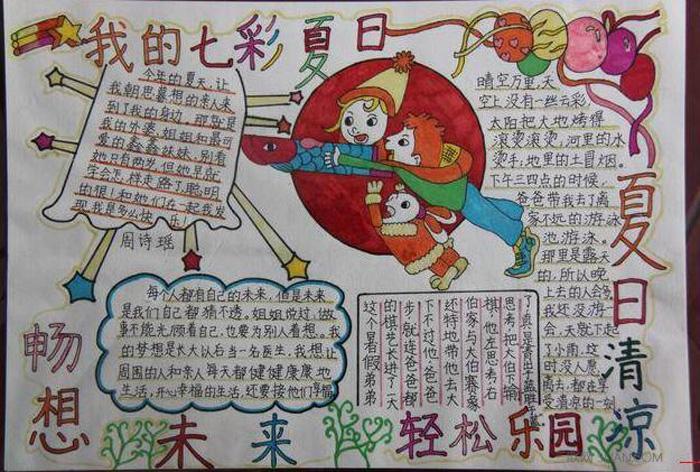 我的七彩夏日
今年的夏天,让
我朝思暮想的亲人来
到了我的身边,那就是
我的外婆、姐姐和最可
爱的鑫鑫妹妹,别看
她只有两岁,但她早就
学会怎样走路了,聪明
的很!和她们在一起我发
现我是多么快乐!
周诗瑶
晴空万里,天
空上没有一丝云彩,
太阳把大地烤得
滚烫滚烫,河里的水
烫手,地里的土冒烟。
下午三四点的时候,
爸爸带我去了离
家不远的游泳
池游泳。
那里是露天
的,所以晚
上去的人会多
我还没游一
会,天就下起
了小雨,这
时没人愿
离去,都在享
受清凉的一刻
夏日清凉
每个人都有自己的未来,但是未来
是我们自己都猜不透。姐姐说过,做
事不能光顾着自己,也要为别人着想。我
的梦想是长大以后当一名医生,我想让
周围的人和亲人每天都健健康康地
生活,开心幸福的生活,还要接他们享福
畅想未来
这个暑假弟弟
的棋艺长进了一大
步,就连爸爸都
下不过他,爸爸
还特地带他去大
伯家与大伯赛象
棋,他左思考右
思考,把大伯下输
了,真是青出于蓝胜于
轻松乐园